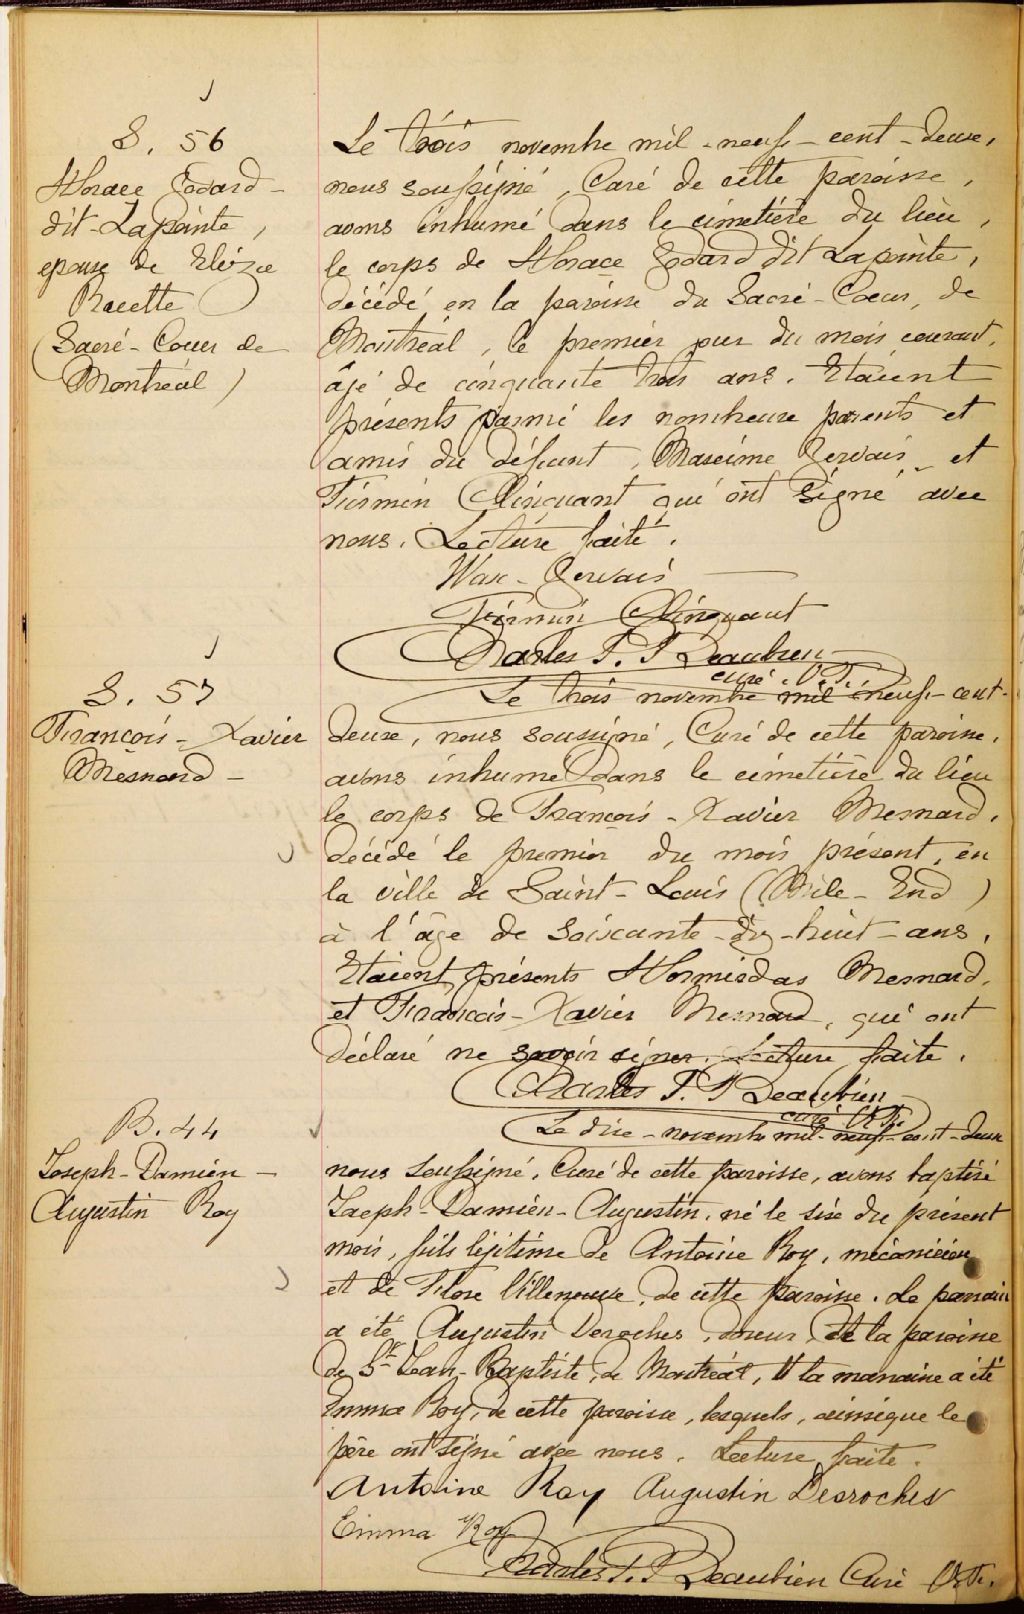 S. 56
Horace Godard
dit Lapointe,
epouse de Elisée
Racette
(Sacré-Coeur de
Montréal)
Le trois novembre mil-neuf-cent-deux,
nous soussigné, Curé de cette paroisse,
avons inhumé dans le cimetière du lieu,
le corps de Horace Godard dit Lapointe,
décédé en la paroisse du Sacré-Coeur, de
Montréal, le premier jour du mois courant,
âgé de cinquante trois ans. Etaient
présents parmi les nombreux parents et
amis du défunt, Maxime Gervais et
Firmin Clinquant qui ont signé avec
nous. Lecture faite.
Max-Gervais
Firmin Clinquant
Charles P. Beaubien
curé. Ptr.
S. 57
François-Xavier
Mesnard-
Le trois novembre mil neuf-cent-
deux, nous soussigné, Curé de cette paroisse,
avons inhumé dans le cimetière du lieu
le corps de François-Xavier Mesnard,
décédé le premier du mois présent, en
la ville de Saint-Louis (Mile-End)
à l'âge de soixante-dix-huit-ans.
Etaient présents Hormisdas Mesnard,
et François-Xavier Mesnard, qui ont
déclaré ne savoir signer. Lecture faite.
Charles P. Beaubien
curé Ptr.
B. 44
Joseph-Damien-
Augustin Roy
Le dix-novembre mil-neuf-cent-deux
nous soussigné, Curé de cette paroisse, avons baptisé
Joseph-Damien-Augustin, né le six du présent
mois, fils légitime de Antoine Roy, mécanicien
et de Flore Villeneuve, de cette paroisse. Le parrain
a été Augustin Deroches, doreur, de la paroisse
de St Jean-Baptiste, de Montréal, et la marraine a été
Emma Roy, de cette paroisse, lesquels, ainsi que le
père ont signé avec nous. Lecture faite.
Antoine Roy Augustin Desroches
Emma Roy
Charles P. Beaubien Curé Ptr.